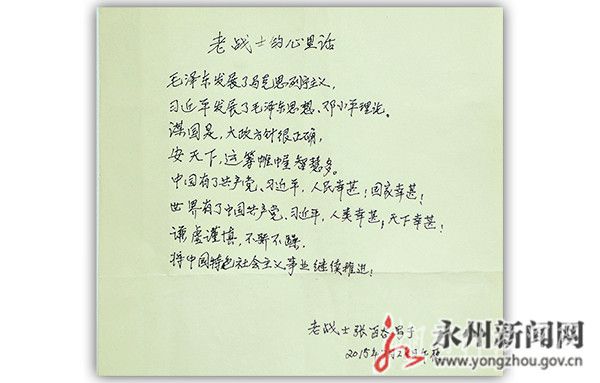 老战士的心里话
毛泽东发展了马克思列宁主义，
习近平发展了毛泽东思想、邓小平理论。
谋国是，大政方针很正确，
安天下，运筹帷幄智慧多。
中国有了共产党、习近平，人民幸甚！国家幸甚！
世界有了中国共产党、习近平，人类幸甚，天下幸甚！
谦虚谨慎，不骄不躁，
将中国特色社会主义事业继续推进！
老战士张百春写于
2015年
永州新闻网
www.yongzhou.gov.cn